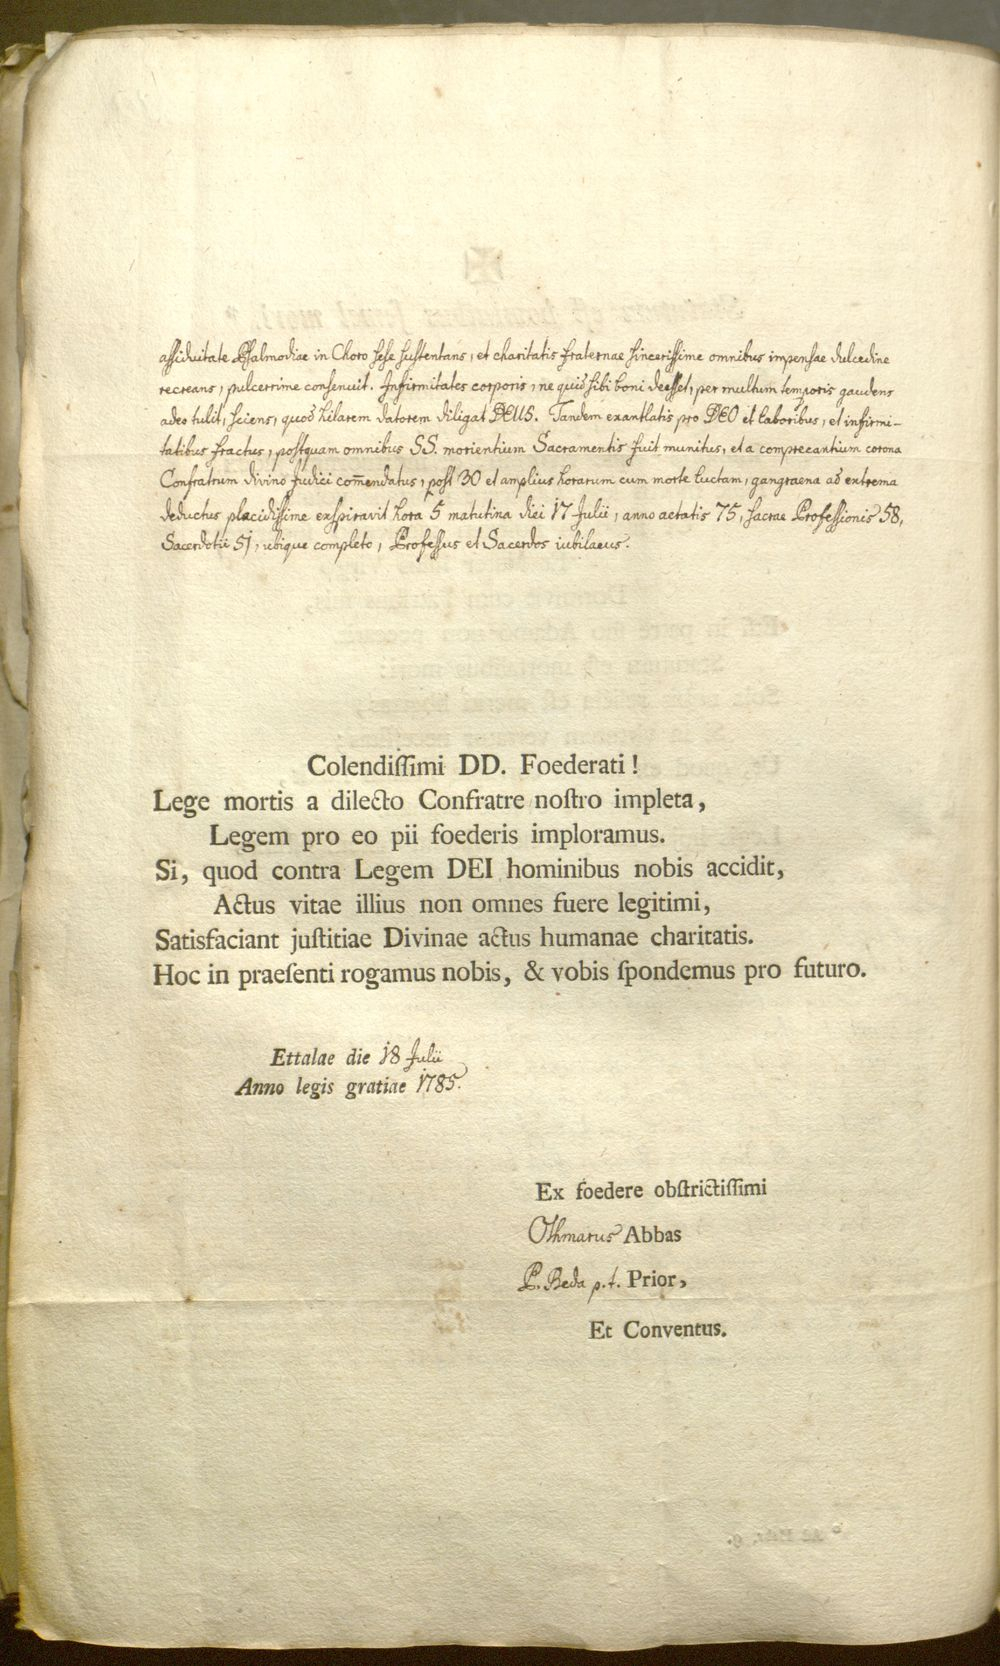 assiduitate Psalmodiae in Choro sese sustentans, et charitatis fraternae sincerissime omnibus impensae dulcedine
recreans, pulcerrime consenuit. Infirmitates corporis, ne quid sibi boni deesset, per multum temporis gaudens
adeo tulit, sciens, quod hilarem datorem diligat DEUS. Tandem exantlatis pro DEO et laboribus, et infirmi-
tatibus fractus, postquam omnibus SS. morientium Sacramentis fuit munitus, et a comprecantium corona
Confratrum divino Judici com̄endatus, post 30 et amplius horarum cum morte luctam, gangraena ad extrema
deductus placidissime exspiravit hora 5 matutina diei 17 Julii, anno aetatis 75, sacrae Professionis 58,
Sacerdotii 51, ubique completo, Professus et Sacerdos iubilaeus.
Colendiſſimi DD. Foederati!
Lege mortis a dilecto Confratre noſtro impleta,
Legem pro eo pii foederis imploramus.
Si, quod contra Legem DEI hominibus nobis accidit,
Actus vitae illius non omnes fuere legitimi,
Satisfaciant juſtitiae Divinae actus humanae charitatis.
Hoc in praeſenti rogamus nobis, & vobis ſpondemus pro futuro.
Ettalae die 18 Julii
Anno legis gratiae 1785.
Ex foedere obſtrictiſſimi
Othmarus Abbas
P. Beda p.t. Prior,
Et Conventus.